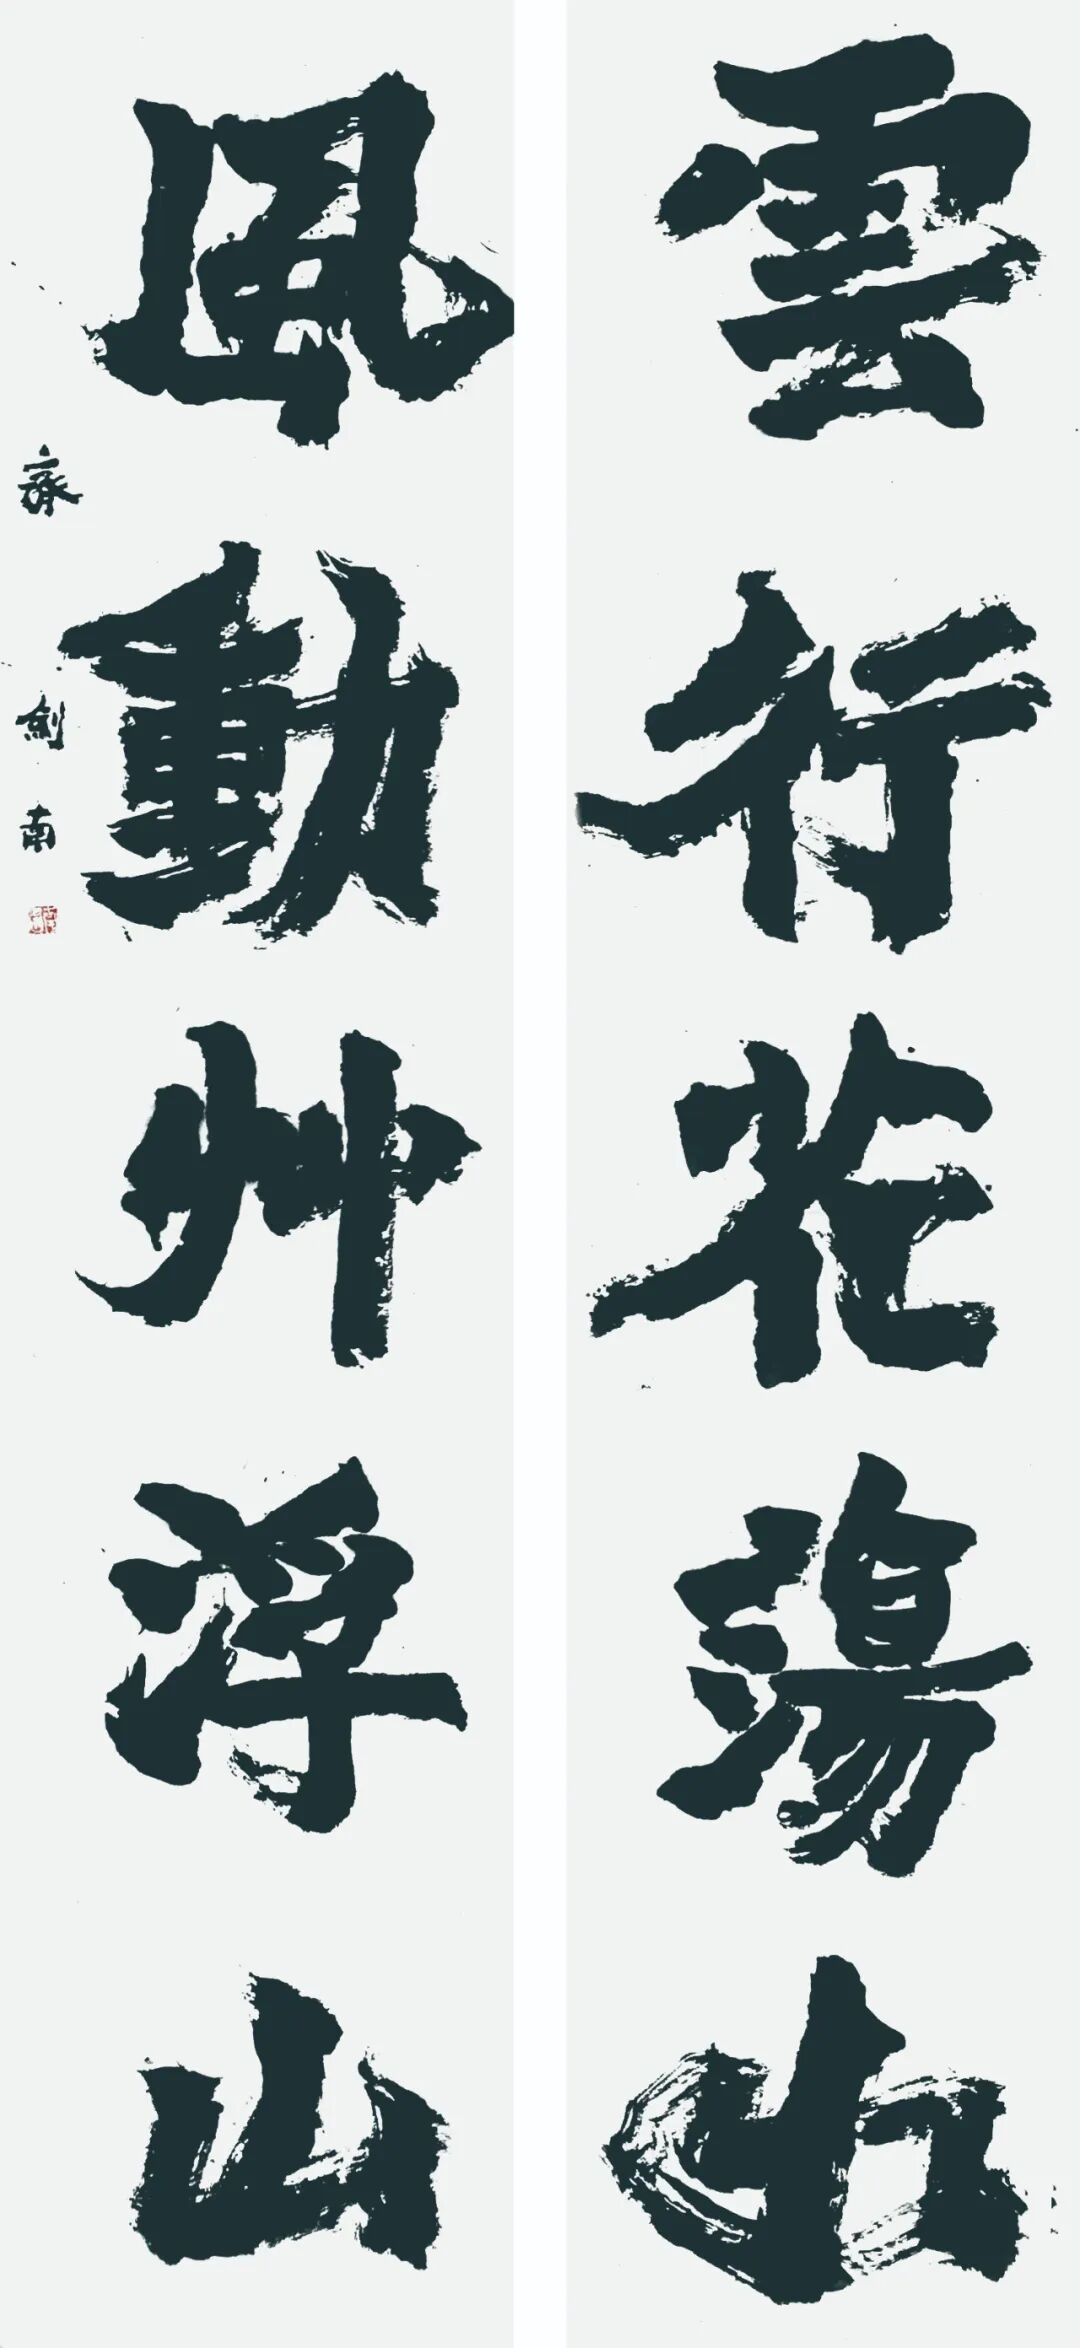 雲行花蕩
風動艸浮山
劍南